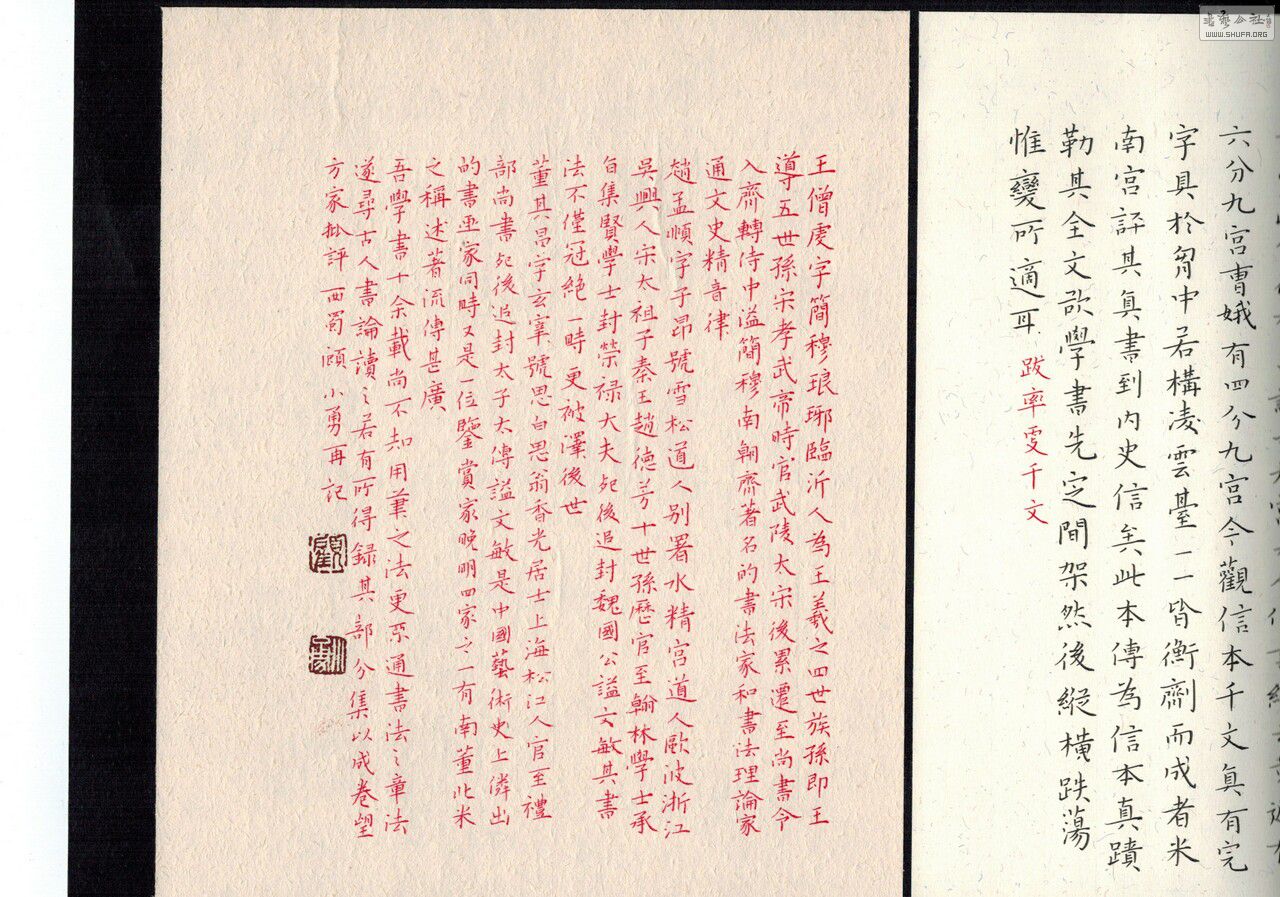 六分九宮曹娥有四分九宮今觀信本千文真有完
字具於胷中若構凌雲臺一一皆衡劑而成者米
南宮評其真書到內史信矣此本傳為信本真蹟
勒其全文欲學書先定間架然後縱橫跌蕩
惟變所適耳 跋率更千文
王僧虔字簡穆琅琊臨沂人為王羲之四世族孫即王
導五世孫宋孝武帝時官武陵太宋後累遷至尚書令
入齊轉侍中謚簡穆南朝齊著名的書法家和書法理論家
通文史精音律
趙孟頫字子昂號雪松道人別署水精宮道人歐波浙江
吳興人宋太祖子秦王趙德芳十世孫歷官至翰林學士承
旨集賢學士封榮禄大夫死後追封魏國公謚文敏其書
法不僅冠絕一時更被澤後世
董其昌字玄宰號思白思翁香光居士上海松江人官至禮
部尚書死後追封太子太傅謚文敏是中國藝術史上傑出
的書画家同時又是一位鑒賞家晚明四家之一有南董北米
之稱述著流傳甚廣
吾學書十余載尚不知用筆之法更不通書法之章法
遂尋古人書論讀之若有所得録其部分集以成卷望
方家批評西蜀顧小勇再記
WWW.SHUFA.ORG